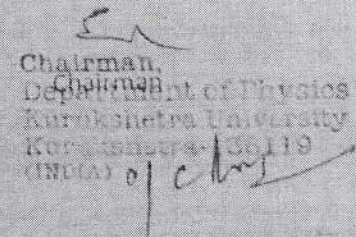 Chairman,
Chairman
Department of Physics
Kurukshetra University
Kurukshetra-136119
(INDIA)